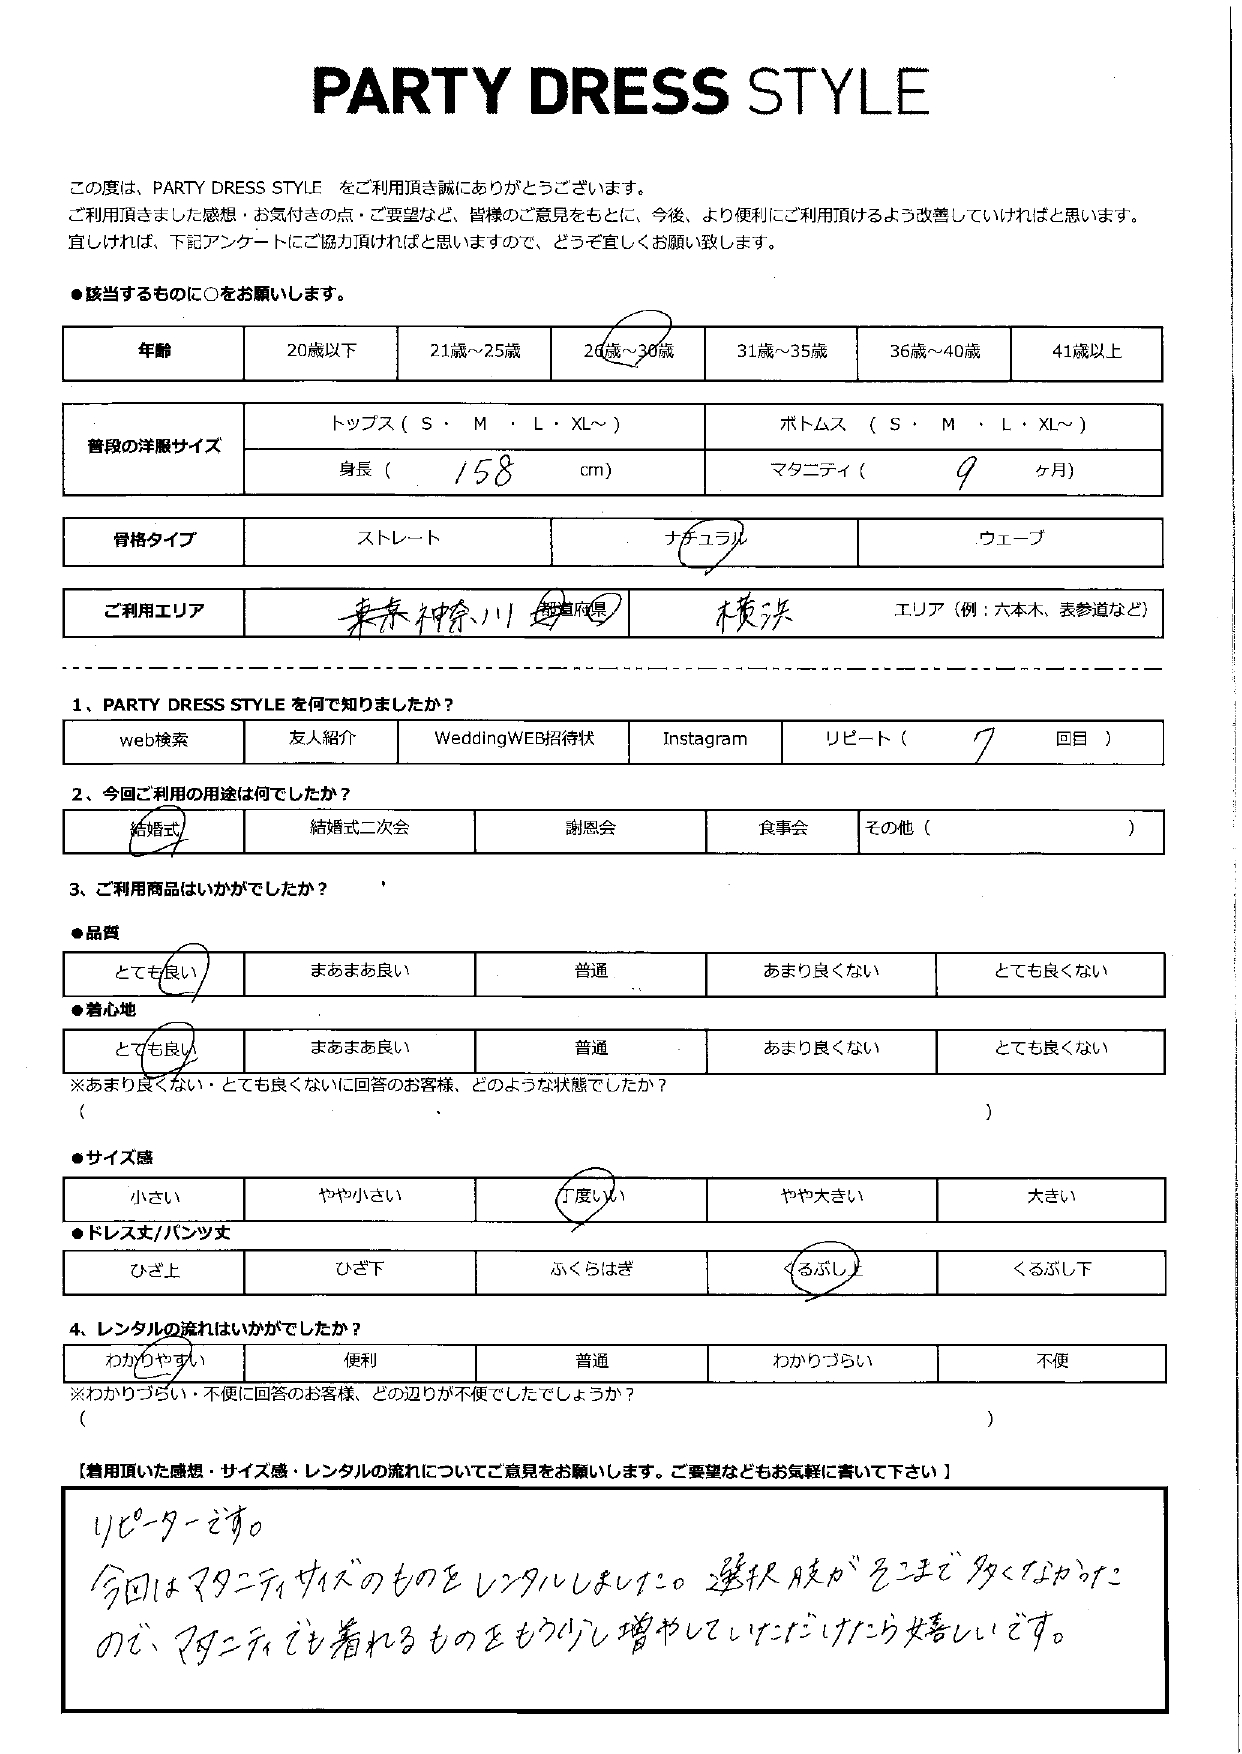 PARTY DRESS STYLE
この度は、PARTY DRESS STYLE をご利用頂き誠にありがとうございます。
ご利用頂きました感想・お気付きの点・ご要望など、皆様のご意見をもとに、今後、より便利にご利用頂けるよう改善していければと思います。
宜しければ、下記アンケートにご協力頂ければと思いますので、どうぞ宜しくお願い致します。
●該当するものに○をお願いします。
年齢 20歳以下 21歳～25歳 26歳～30歳 31歳～35歳 36歳～40歳 41歳以上
普段の洋服サイズ トップス ( S ・ M ・ L ・ XL～ ) ボトムス ( S ・ M ・ L ・ XL～ )
身長 ( 158 cm) マタニティ ( 9 ヶ月)
骨格タイプ ストレート ナチュラル ウェーブ
ご利用エリア 東京 神奈川 都道府県 横浜 エリア（例：六本木、表参道など）
1、PARTY DRESS STYLE を何で知りましたか？
web検索 友人紹介 WeddingWEB招待状 Instagram リピート ( 7 回目 )
2、今回ご利用の用途は何でしたか？
結婚式 結婚式二次会 謝恩会 食事会 その他 ( )
3、ご利用商品はいかがでしたか？
●品質
とても良い まあまあ良い 普通 あまり良くない とても良くない
●着心地
とても良い まあまあ良い 普通 あまり良くない とても良くない
※あまり良くない・とても良くないに回答のお客様、どのような状態でしたか？
( )
●サイズ感
小さい やや小さい 丁度いい やや大きい 大きい
●ドレス丈/パンツ丈
ひざ上 ひざ下 ふくらはぎ くるぶし上 くるぶし下
4、レンタルの流れはいかがでしたか？
わかりやすい 便利 普通 わかりづらい 不便
※わかりづらい・不便に回答のお客様、どの辺りが不便でしたでしょうか？
( )
【着用頂いた感想・サイズ感・レンタルの流れについてご意見をお願いします。ご要望などもお気軽に書いて下さい 】
リピーターです。
今回はマタニティサイズのものをレンタルしました。選択肢がそこまで多くなかった
ので、マタニティでも着れるものをもう少し増やしていただけたら嬉しいです。